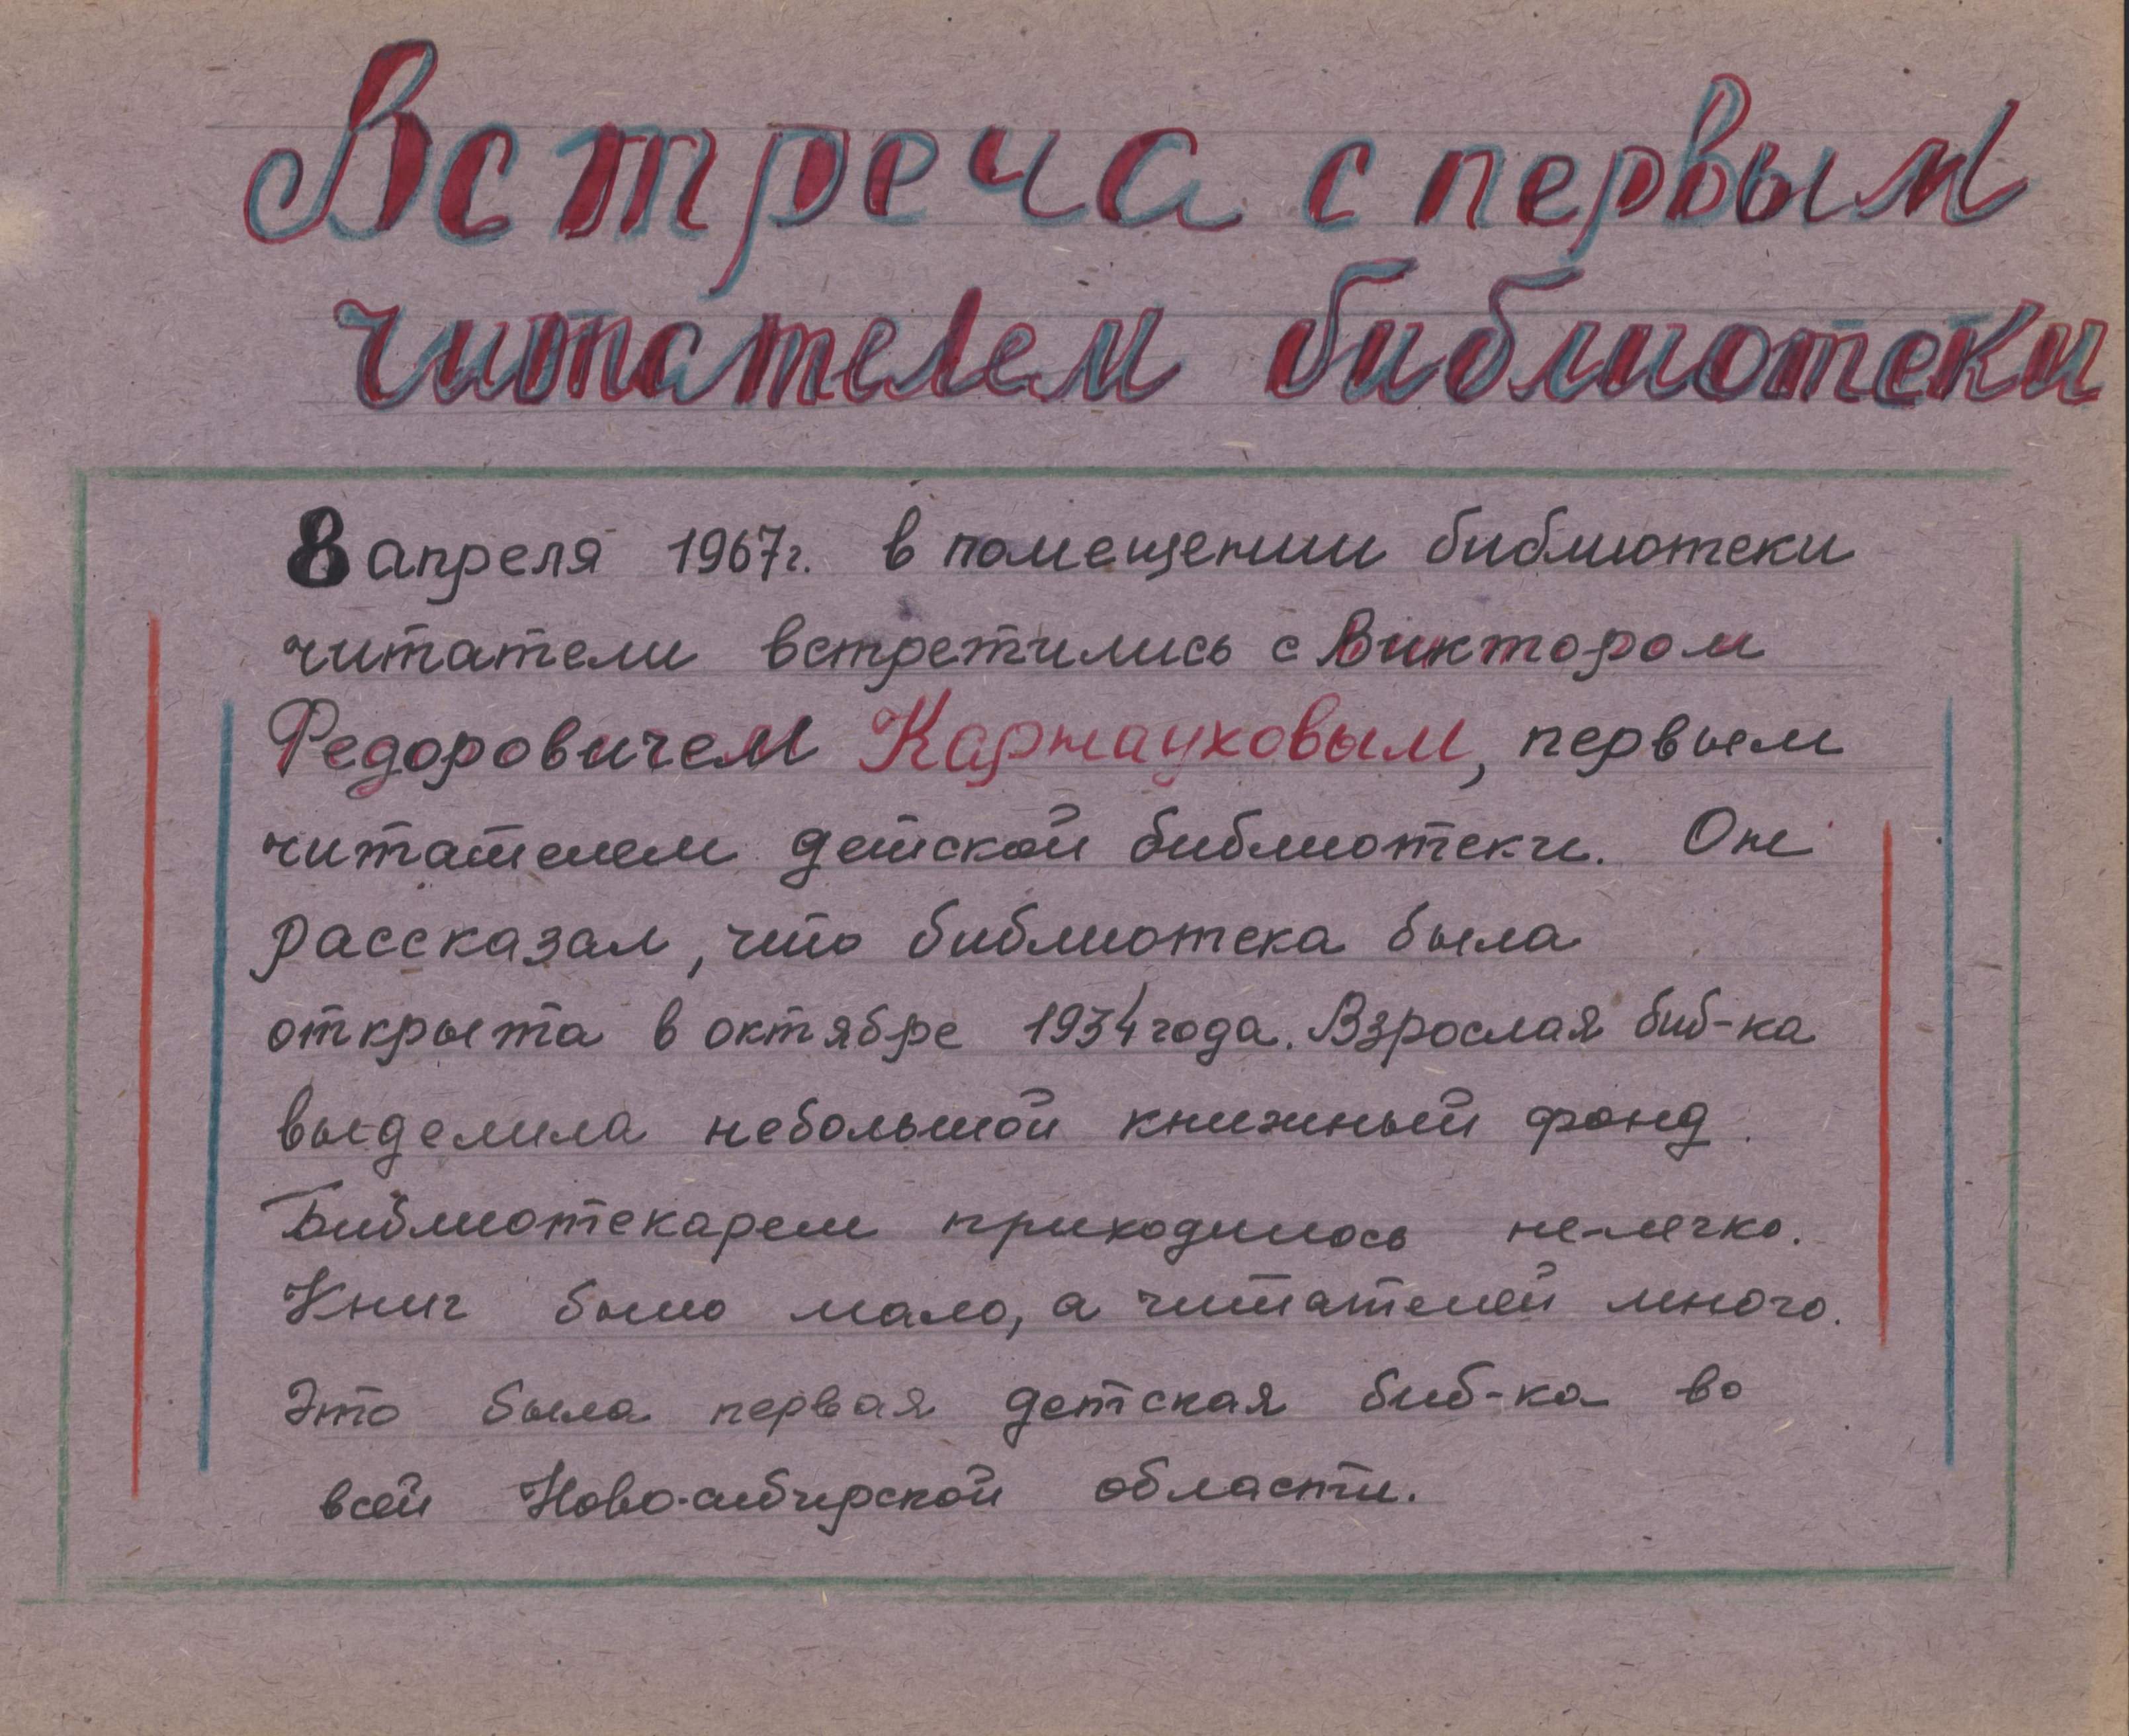 Встреча с первым
читателем библиотеки
8 апреля 1967г. в помещении библиотеки
читатели встретились с Виктором
Федоровичем Карнауховым, первым
читателем детской библиотеки. Он
рассказал, что библиотека была
открыта в октябре 1934 года. Взрослая биб-ка
выделила небольшой книжный фонд.
Библиотекарем приходилось не-легко.
Книг было мало, а читателей много.
Это была первая детская биб-ка во
всей Ново-сибирской области.